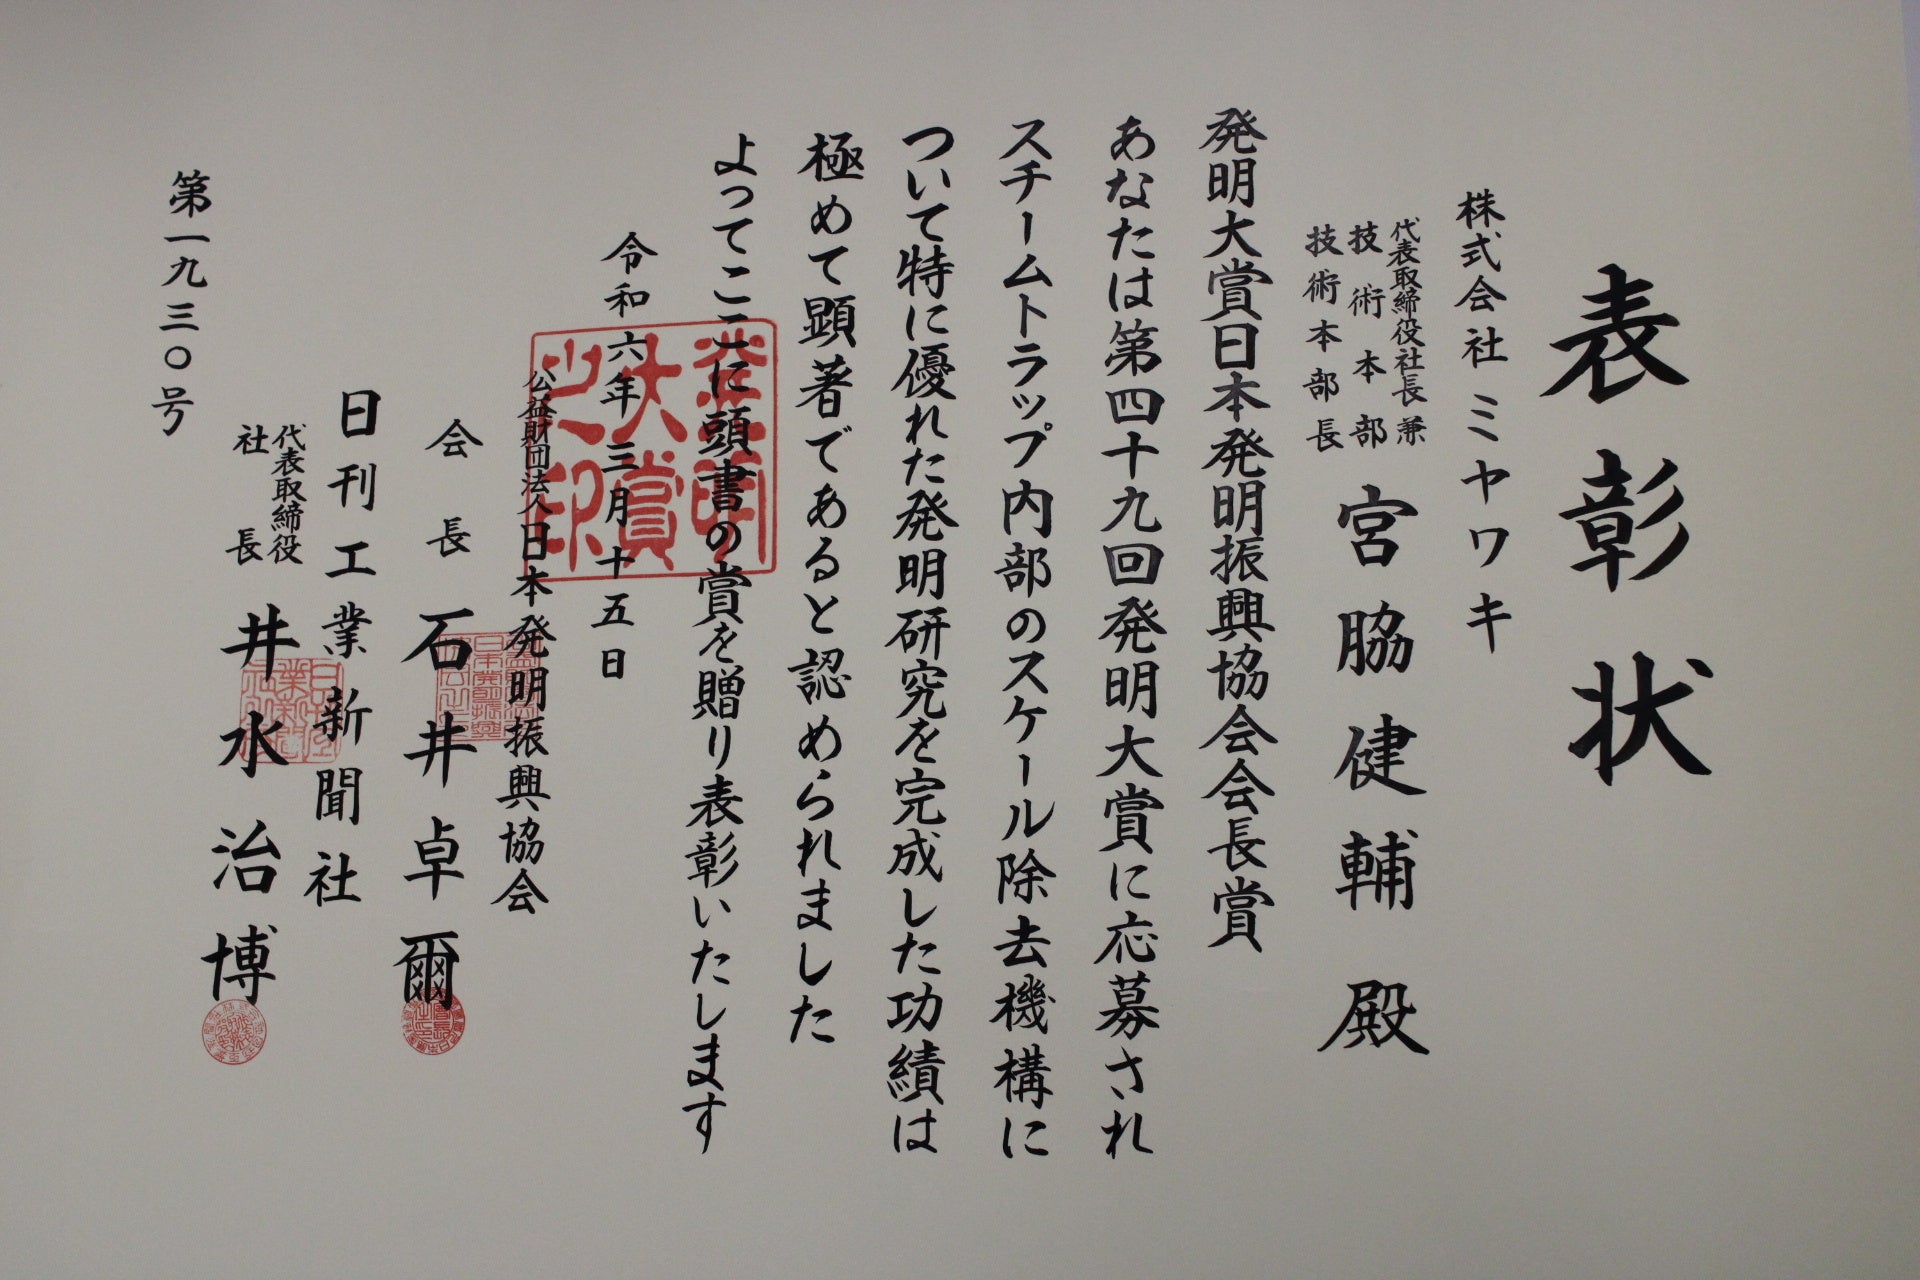 表彰状
株式会社ミヤワキ
代表取締役社長兼
技術本部
技術本部長
宮脇健輔殿
発明大賞日本発明振興協会会長賞
あなたは第四十九回発明大賞に応募され
スチームトラップ内部のスケール除去機構に
ついて特に優れた発明研究を完成した功績は
極めて顕著であると認められました
よってここに頭書の賞を贈り表彰いたします
令和六年三月十五日
発明
大賞
之印
公益財団法人日本発明振興協会
会長石井卓爾
日刊工業新聞社
代表取締役
社長
井水治博
第一九三〇号